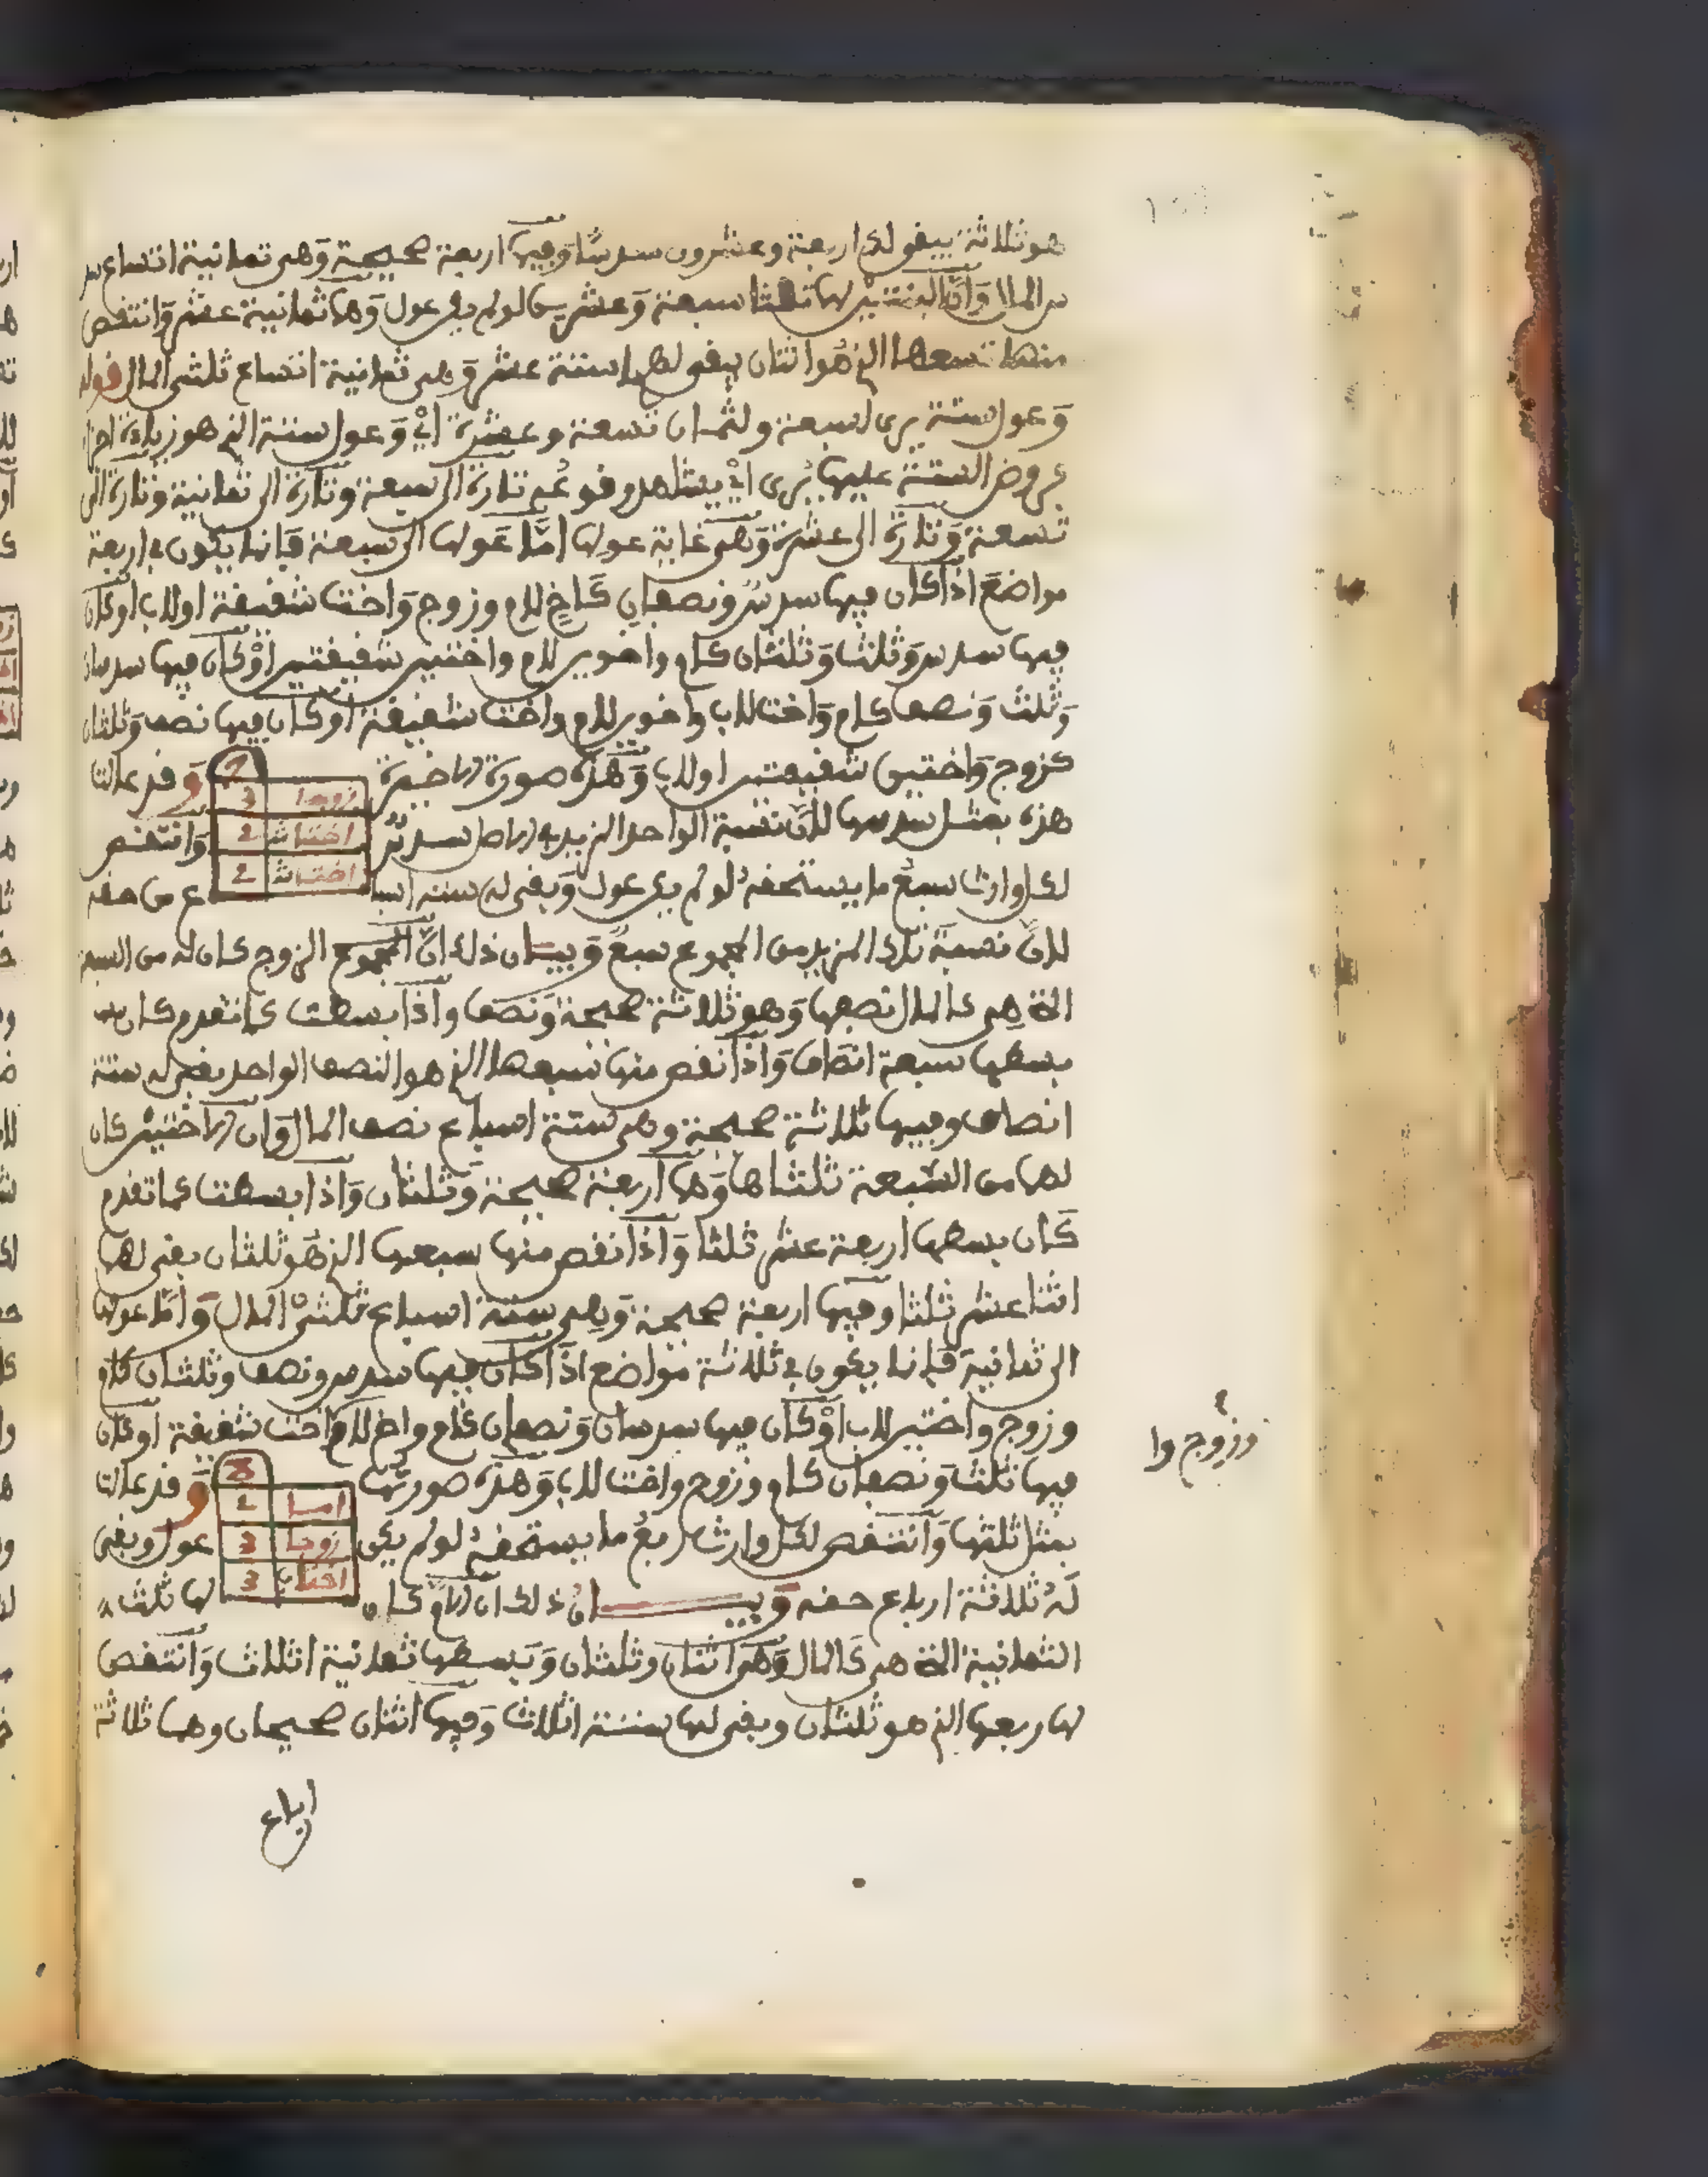 هو ثلاثة يبقى له اربعة وعشرون سدسًا وَفيها اربعة صحيحة وَهى ثمانية اتساع سد
س المال وَانّ البنتين لهما ثلثا سبعة وَعشرين لو لم يكن عول وَهما ثمانية عشر وَانتقص
منهما تسعهما الذى هُو اثنان يبقى لهما ستة عشر وَهى ثمانية اتساع ثلثى المال قوله
وَعول ستة يرى لسبعة ولثمان تسعة وعشرة اىْ وَعول ستة الذى هو زيادة اجزاء
فروض الستة عليها يُرى اىْ يشاهد وقوعُه تارة الى سبعة وتارة الى ثمانية وتارة الى
تسعة وَتارة الى عشرة وَهى غاية عولها امّا عَولها الى سبعة فَانما يكون فى اربعة
مواضعَ اذا كان فيها سدسٌ ونصفان كَاخٍ للام وزوج وَاخت شقيقة او لاب او كان
فيها سدس وَثلث وَثلثان كام واخوين للام واختين شقيقتين اوْ كان فيها سدسان
وَثلث وَنصف كام وَاخت للاب واخوين للام واخت شقيقة او كان فيها نصف وَثلثان
كزوج وَاختين شقيقتين او لاب وَهذه صورة الاخيرة
7
زوجا 3
اختاش 2
اختاش 2
وَقد عالت
هذه بمثل سدسها لانّ نسبة الواحد المزيد به للاصل سدسٌ وَانتقص
لكل وارث سبعُ ما يستحقه لو لم يكن عول وَيبقى له ستة اسبا ع من حقه
لانّ نسبة ذلك المزيد من المجموع سبعٌ وَبيــان ذلك انّ الزوج كان له من السبعة
التى هِى كالمال نصفها وَهو ثلاثة صحيحة وَنصف واذا بسطت كما تقدم كان
بسطها سبعة انصاف وَاذا نقص منها سبعها الذى هو النصف الواحد بقى له ستة
انصاف وفيها ثلاثة صحيحة وهى ستة اسباع نصف المال وَان الاختين كان
لهما من السبعة ثلثاها وَهما اربعة صحيحة وَثلثان وَاذا بسطت كما تقدم
كَان بسطها اربعة عشر ثلثا وَاذا نقص منها سبعها الذى هُو ثلثان بقى لهما
اثنا عشر ثلثا وفيها اربعة صحيحة وَهِى ستة اسباع ثلثىْ المال وَامّا عولها
الى ثمانية فَانما يكون فى ثلاثة مواضع اذا كان فيها سدس ونصف وثلثان كام
وزوج واختين للاب اوْ كان فيها سدسان وَنصفان كام واخ للام واخت شقيقة او كان
وزوج وا
فيها ثلث وَنصفان كام وزوج واخت للاب وَهذه صورتُها
8
اما 2
زوجا 3
اختاب 3
وَقد عالت
بمثل ثلثها وَانتقص لكل وارث ربعُ ما يستحقه لو لم يكن عول وبقى
لَهُ ثلاثة ارباع حقه وَبيــــــانُ ذلك ان الام كان لها ثلث
الثمانية التى هى كَالمال وَهى اثنان وثلثان وَبسطها ثمانية اثلاث وَانتقص
لها ربعها الذى هو ثلثان وبقى لها ستة اثلاث وَفيها اثنان صحيحان وهما ثلاثة
ارباع